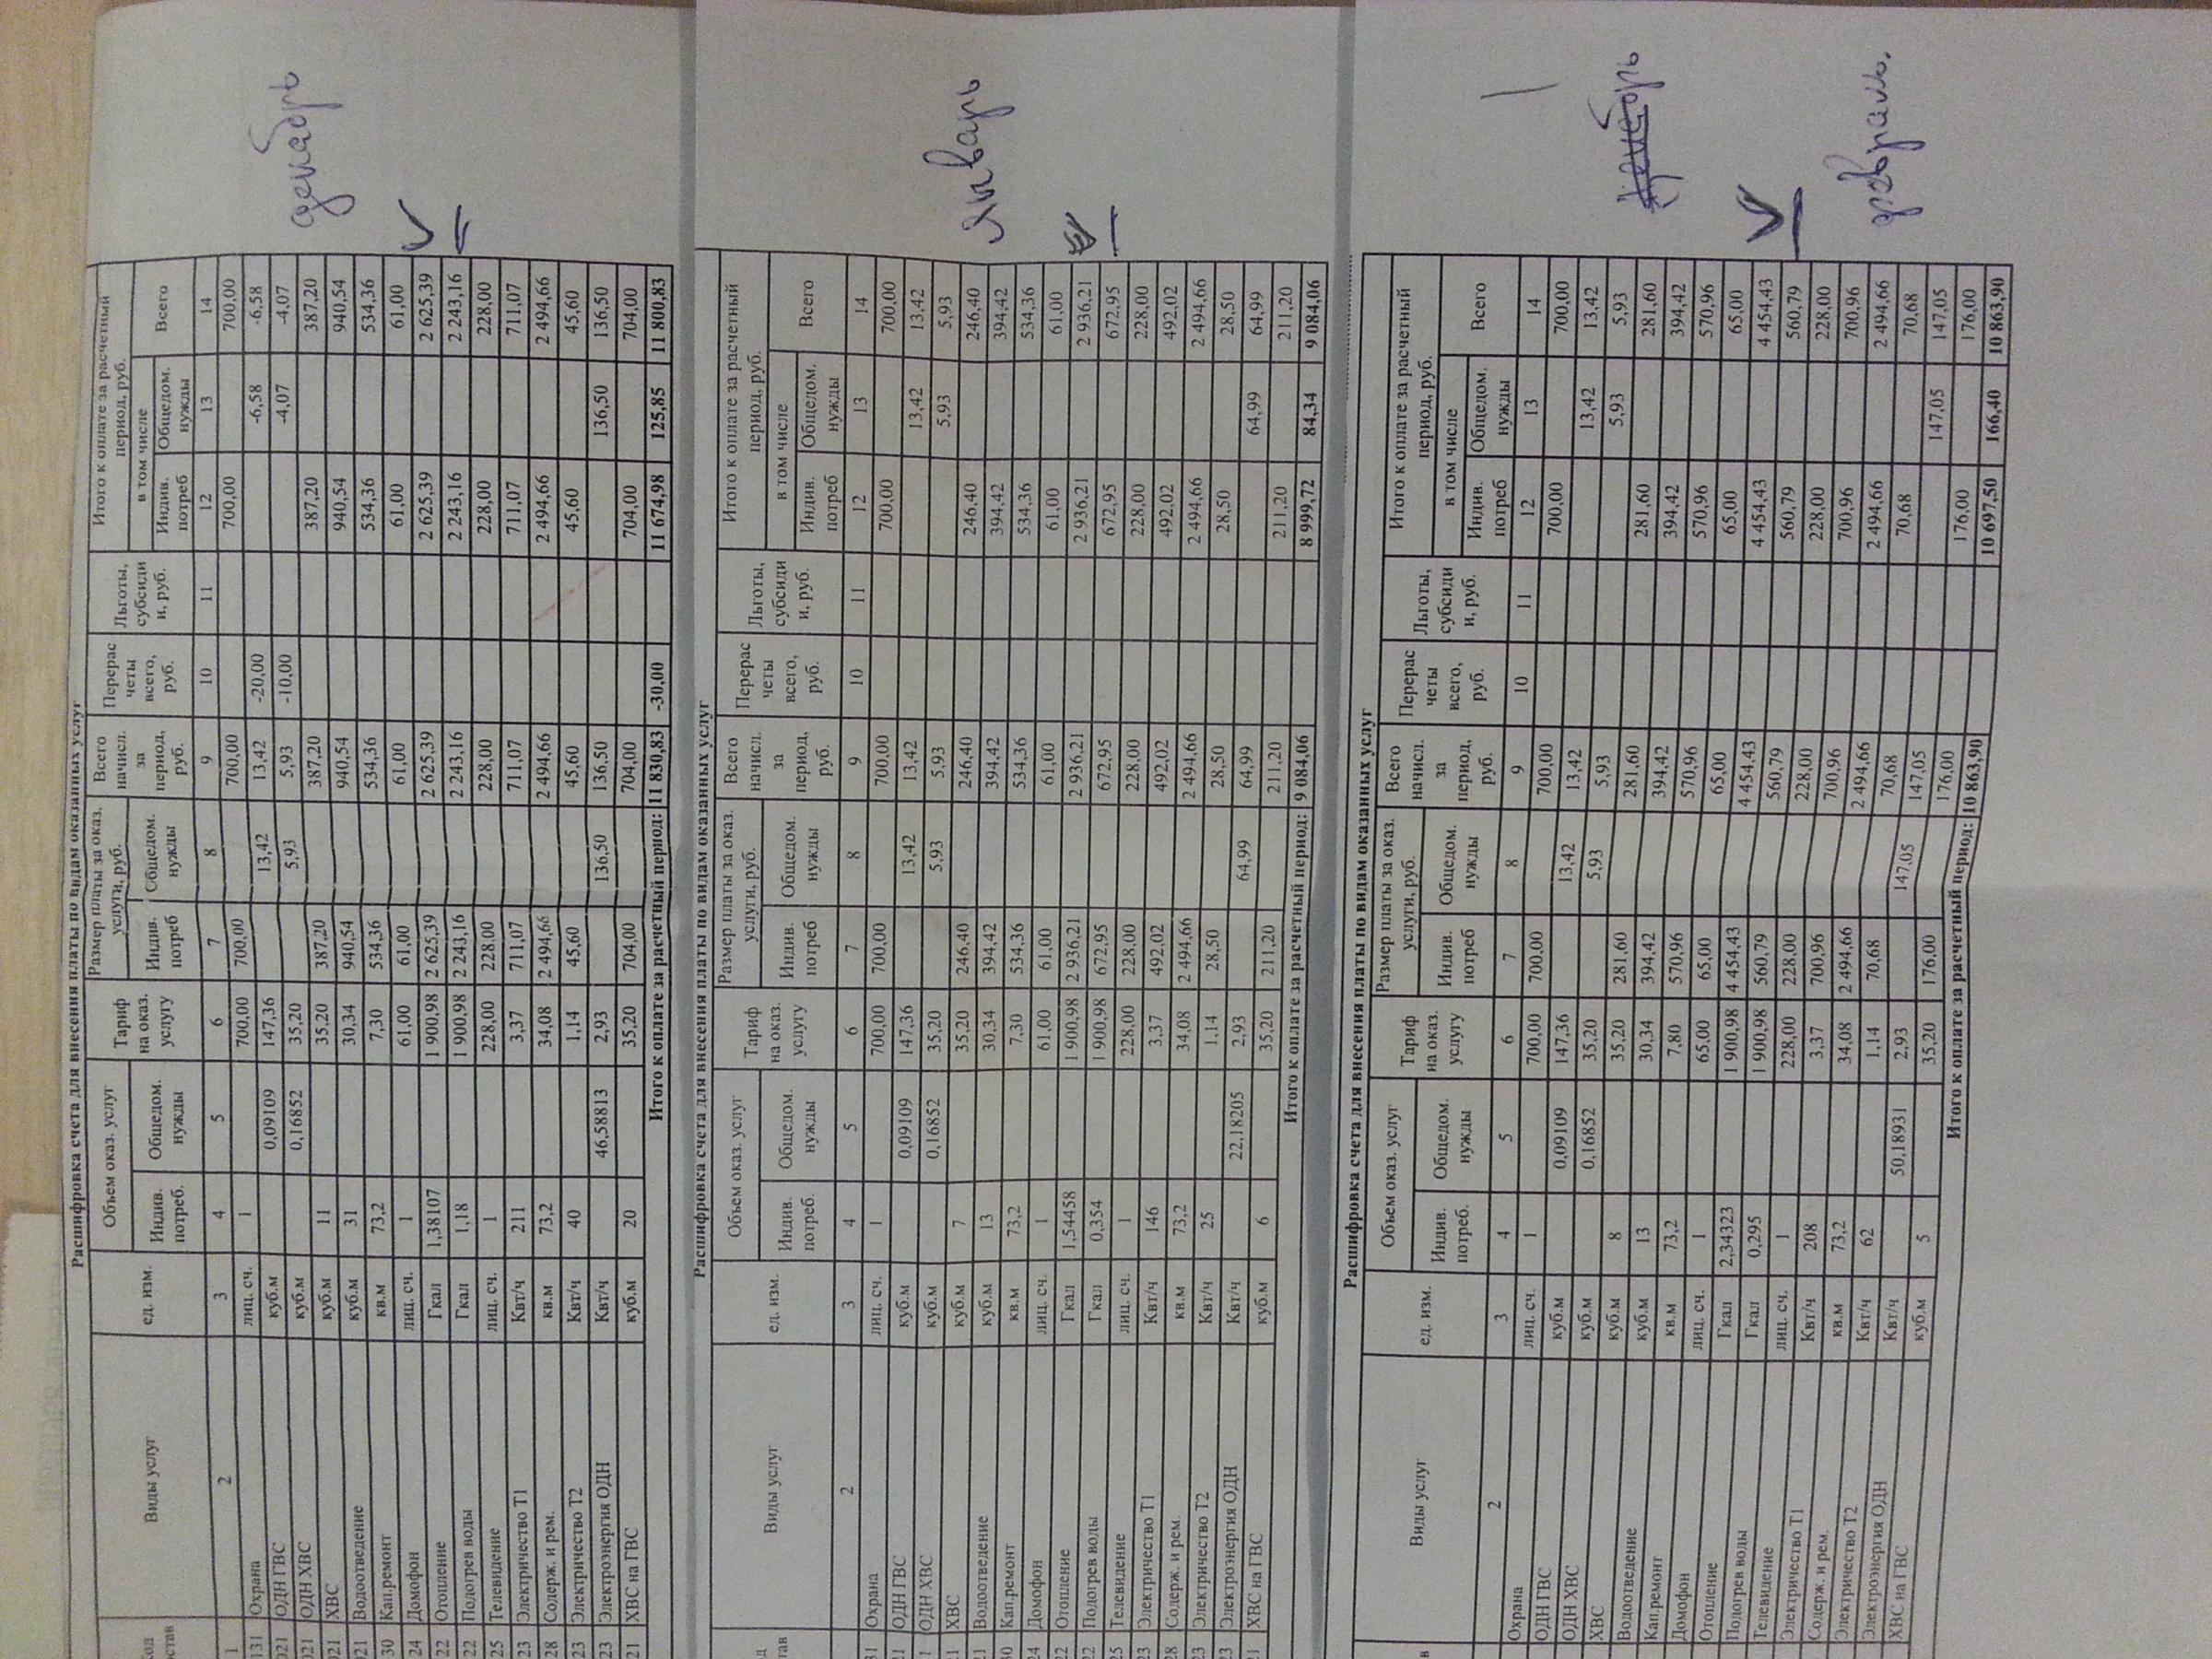 декабрь
Расшифровка счета для внесения платы по видам оказанных услуг
Виды услуг | ед. изм. | Объем оказ. услуг | Тариф на оказ. услугу | Размер платы за оказ. услуги, руб. | Всего начисл. за период, руб. | Перерас четы всего, руб. | Льготы, субсиди и, руб. | Итого к оплате за расчетный период, руб.
Индив. потреб. | Общедом. нужды | Индив. потреб | Общедом. нужды | в том числе | Индив. потреб | Общедом. нужды | Всего
1 | 2 | 3 | 4 | 5 | 6 | 7 | 8 | 9 | 10 | 11 | 12 | 13 | 14
131 | Охрана | лиц. сч. | 1 | 700,00 | 700,00 | 700,00 | 700,00 | 700,00
021 | ОДН ГВС | куб.м | 0,09109 | 147,36 | 13,42 | 13,42 | -20,00 | -6,58 | -6,58
021 | ОДН ХВС | куб.м | 0,16852 | 35,20 | 5,93 | 5,93 | -10,00 | -4,07 | -4,07
021 | ХВС | куб.м | 11 | 35,20 | 387,20 | 387,20 | 387,20 | 387,20
21 | Водоотведение | куб.м | 31 | 30,34 | 940,54 | 940,54 | 940,54 | 940,54
30 | Кап.ремонт | кв.м | 73,2 | 7,30 | 534,36 | 534,36 | 534,36 | 534,36
24 | Домофон | лиц. сч. | 1 | 61,00 | 61,00 | 61,00 | 61,00 | 61,00
22 | Отопление | Гкал | 1,38107 | 1 900,98 | 2 625,39 | 2 625,39 | 2 625,39 | 2 625,39
22 | Подогрев воды | Гкал | 1,18 | 1 900,98 | 2 243,16 | 2 243,16 | 2 243,16 | 2 243,16
25 | Телевидение | лиц. сч. | 1 | 228,00 | 228,00 | 228,00 | 228,00 | 228,00
23 | Электричество Т1 | Квт/ч | 211 | 3,37 | 711,07 | 711,07 | 711,07 | 711,07
28 | Содерж. и рем. | кв.м | 73,2 | 34,08 | 2 494,66 | 2 494,66 | 2 494,66 | 2 494,66
23 | Электричество Т2 | Квт/ч | 40 | 1,14 | 45,60 | 45,60 | 45,60 | 45,60
23 | Электроэнергия ОДН | Квт/ч | 46,58813 | 2,93 | 136,50 | 136,50 | 136,50 | 136,50
21 | ХВС на ГВС | куб.м | 20 | 35,20 | 704,00 | 704,00 | 704,00 | 704,00
Итого к оплате за расчетный период: | 11 830,83 | -30,00 | 11 674,98 | 125,85 | 11 800,83
январь
Расшифровка счета для внесения платы по видам оказанных услуг
Виды услуг | ед. изм. | Объем оказ. услуг | Тариф на оказ. услугу | Размер платы за оказ. услуги, руб. | Всего начисл. за период, руб. | Перерас четы всего, руб. | Льготы, субсиди и, руб. | Итого к оплате за расчетный период, руб.
Индив. потреб. | Общедом. нужды | Индив. потреб | Общедом. нужды | в том числе | Индив. потреб | Общедом. нужды | Всего
2 | 3 | 4 | 5 | 6 | 7 | 8 | 9 | 10 | 11 | 12 | 13 | 14
31 | Охрана | лиц. сч. | 1 | 700,00 | 700,00 | 700,00 | 700,00 | 700,00
21 | ОДН ГВС | куб.м | 0,09109 | 147,36 | 13,42 | 13,42 | 13,42 | 13,42
1 | ОДН ХВС | куб.м | 0,16852 | 35,20 | 5,93 | 5,93 | 5,93 | 5,93
11 | ХВС | куб.м | 7 | 35,20 | 246,40 | 246,40 | 246,40 | 246,40
21 | Водоотведение | куб.м | 13 | 30,34 | 394,42 | 394,42 | 394,42 | 394,42
30 | Кап.ремонт | кв.м | 73,2 | 7,30 | 534,36 | 534,36 | 534,36 | 534,36
24 | Домофон | лиц. сч. | 1 | 61,00 | 61,00 | 61,00 | 61,00 | 61,00
22 | Отопление | Гкал | 1,54458 | 1 900,98 | 2 936,21 | 2 936,21 | 2 936,21 | 2 936,21
22 | Подогрев воды | Гкал | 0,354 | 1 900,98 | 672,95 | 672,95 | 672,95 | 672,95
25 | Телевидение | лиц. сч. | 1 | 228,00 | 228,00 | 228,00 | 228,00 | 228,00
23 | Электричество Т1 | Квт/ч | 146 | 3,37 | 492,02 | 492,02 | 492,02 | 492,02
28 | Содерж. и рем. | кв.м | 73,2 | 34,08 | 2 494,66 | 2 494,66 | 2 494,66 | 2 494,66
23 | Электричество Т2 | Квт/ч | 25 | 1,14 | 28,50 | 28,50 | 28,50 | 28,50
23 | Электроэнергия ОДН | Квт/ч | 22,18205 | 2,93 | 64,99 | 64,99 | 64,99 | 64,99
21 | ХВС на ГВС | куб.м | 6 | 35,20 | 211,20 | 211,20 | 211,20 | 211,20
Итого к оплате за расчетный период: | 9 084,06 | 8 999,72 | 84,34 | 9 084,06
февраль.
Расшифровка счета для внесения платы по видам оказанных услуг
Виды услуг | ед. изм. | Объем оказ. услуг | Тариф на оказ. услугу | Размер платы за оказ. услуги, руб. | Всего начисл. за период, руб. | Перерас четы всего, руб. | Льготы, субсиди и, руб. | Итого к оплате за расчетный период, руб.
Индив. потреб. | Общедом. нужды | Индив. потреб | Общедом. нужды | в том числе | Индив. потреб | Общедом. нужды | Всего
2 | 3 | 4 | 5 | 6 | 7 | 8 | 9 | 10 | 11 | 12 | 13 | 14
Охрана | лиц. сч. | 1 | 700,00 | 700,00 | 700,00 | 700,00 | 700,00
ОДН ГВС | куб.м | 0,09109 | 147,36 | 13,42 | 13,42 | 13,42 | 13,42
ОДН ХВС | куб.м | 0,16852 | 35,20 | 5,93 | 5,93 | 5,93 | 5,93
ХВС | куб.м | 8 | 35,20 | 281,60 | 281,60 | 281,60 | 281,60
Водоотведение | куб.м | 13 | 30,34 | 394,42 | 394,42 | 394,42 | 394,42
Кап.ремонт | кв.м | 73,2 | 7,80 | 570,96 | 570,96 | 570,96 | 570,96
Домофон | лиц. сч. | 1 | 65,00 | 65,00 | 65,00 | 65,00 | 65,00
Отопление | Гкал | 2,34323 | 1 900,98 | 4 454,43 | 4 454,43 | 4 454,43 | 4 454,43
Подогрев воды | Гкал | 0,295 | 1 900,98 | 560,79 | 560,79 | 560,79 | 560,79
Телевидение | лиц. сч. | 1 | 228,00 | 228,00 | 228,00 | 228,00 | 228,00
Электричество Т1 | Квт/ч | 208 | 3,37 | 700,96 | 700,96 | 700,96 | 700,96
Содерж. и рем. | кв.м | 73,2 | 34,08 | 2 494,66 | 2 494,66 | 2 494,66 | 2 494,66
Электричество Т2 | Квт/ч | 62 | 1,14 | 70,68 | 70,68 | 70,68 | 70,68
Электроэнергия ОДН | Квт/ч | 50,18931 | 2,93 | 147,05 | 147,05 | 147,05 | 147,05
ХВС на ГВС | куб.м | 5 | 35,20 | 176,00 | 176,00 | 176,00 | 176,00
Итого к оплате за расчетный период: | 10 863,90 | 10 697,50 | 166,40 | 10 863,90